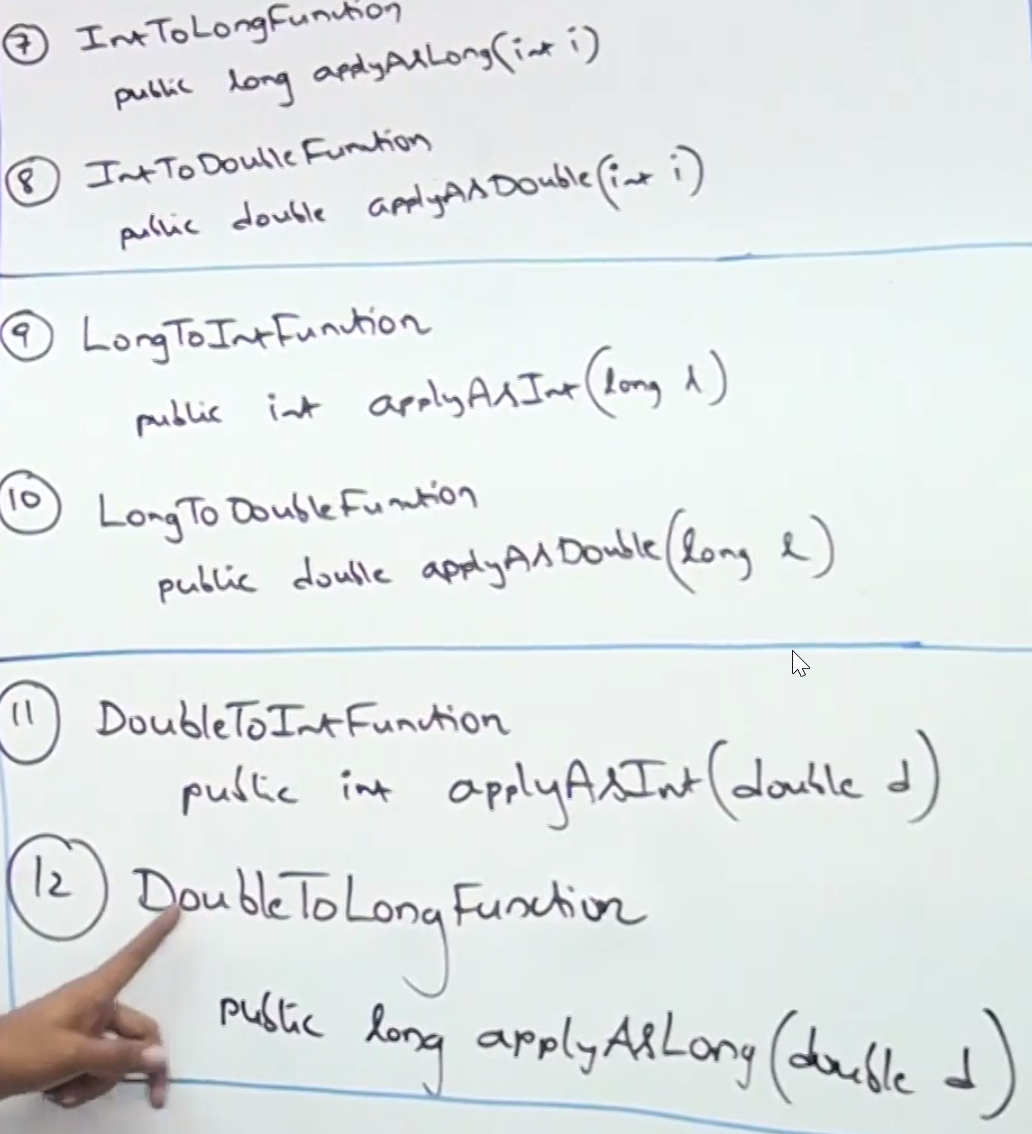 7 IntToLongFunction
public long applyAsLong(int i)
8 IntToDoubleFunction
public double applyAsDouble(int i)
9 LongToIntFunction
public int applyAsInt(long l)
10 LongToDoubleFunction
public double applyAsDouble(long l)
11 DoubleToIntFunction
public int applyAsInt(double d)
12 DoubleToLongFunction
public long applyAsLong(double d)